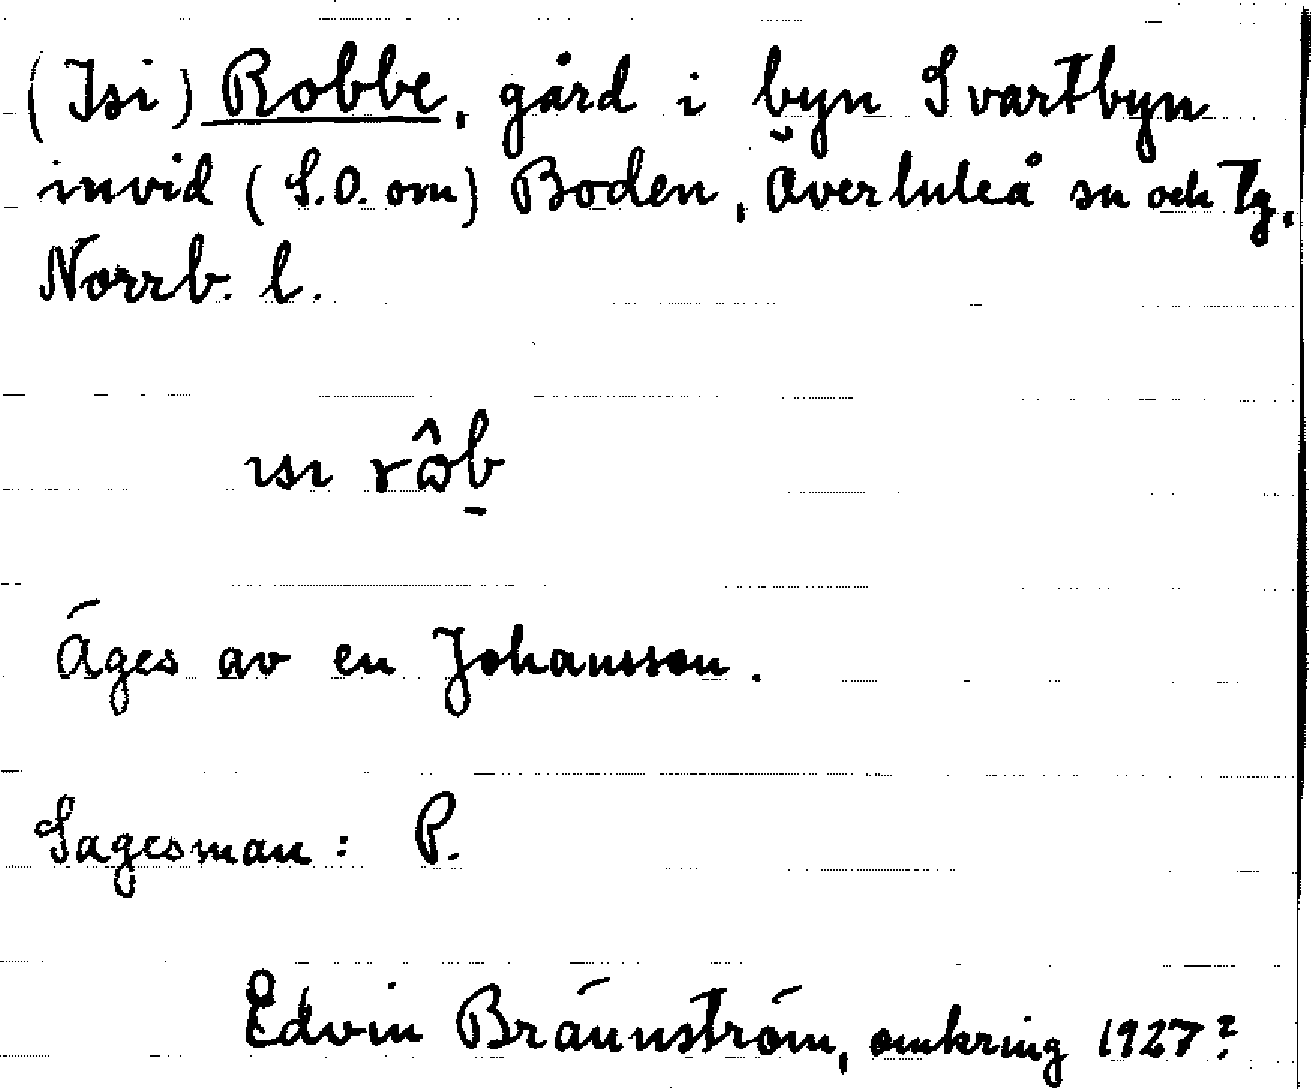 (Isi) Robbe, gård i byn Svartbyn
invid (S.O. om) Boden, Överluleå sn och tg,
Norrb. l.
ısı rôb̠
Äges av en Johansson.
Sagesman: P.
Edvin Brännström, omkring 1927?